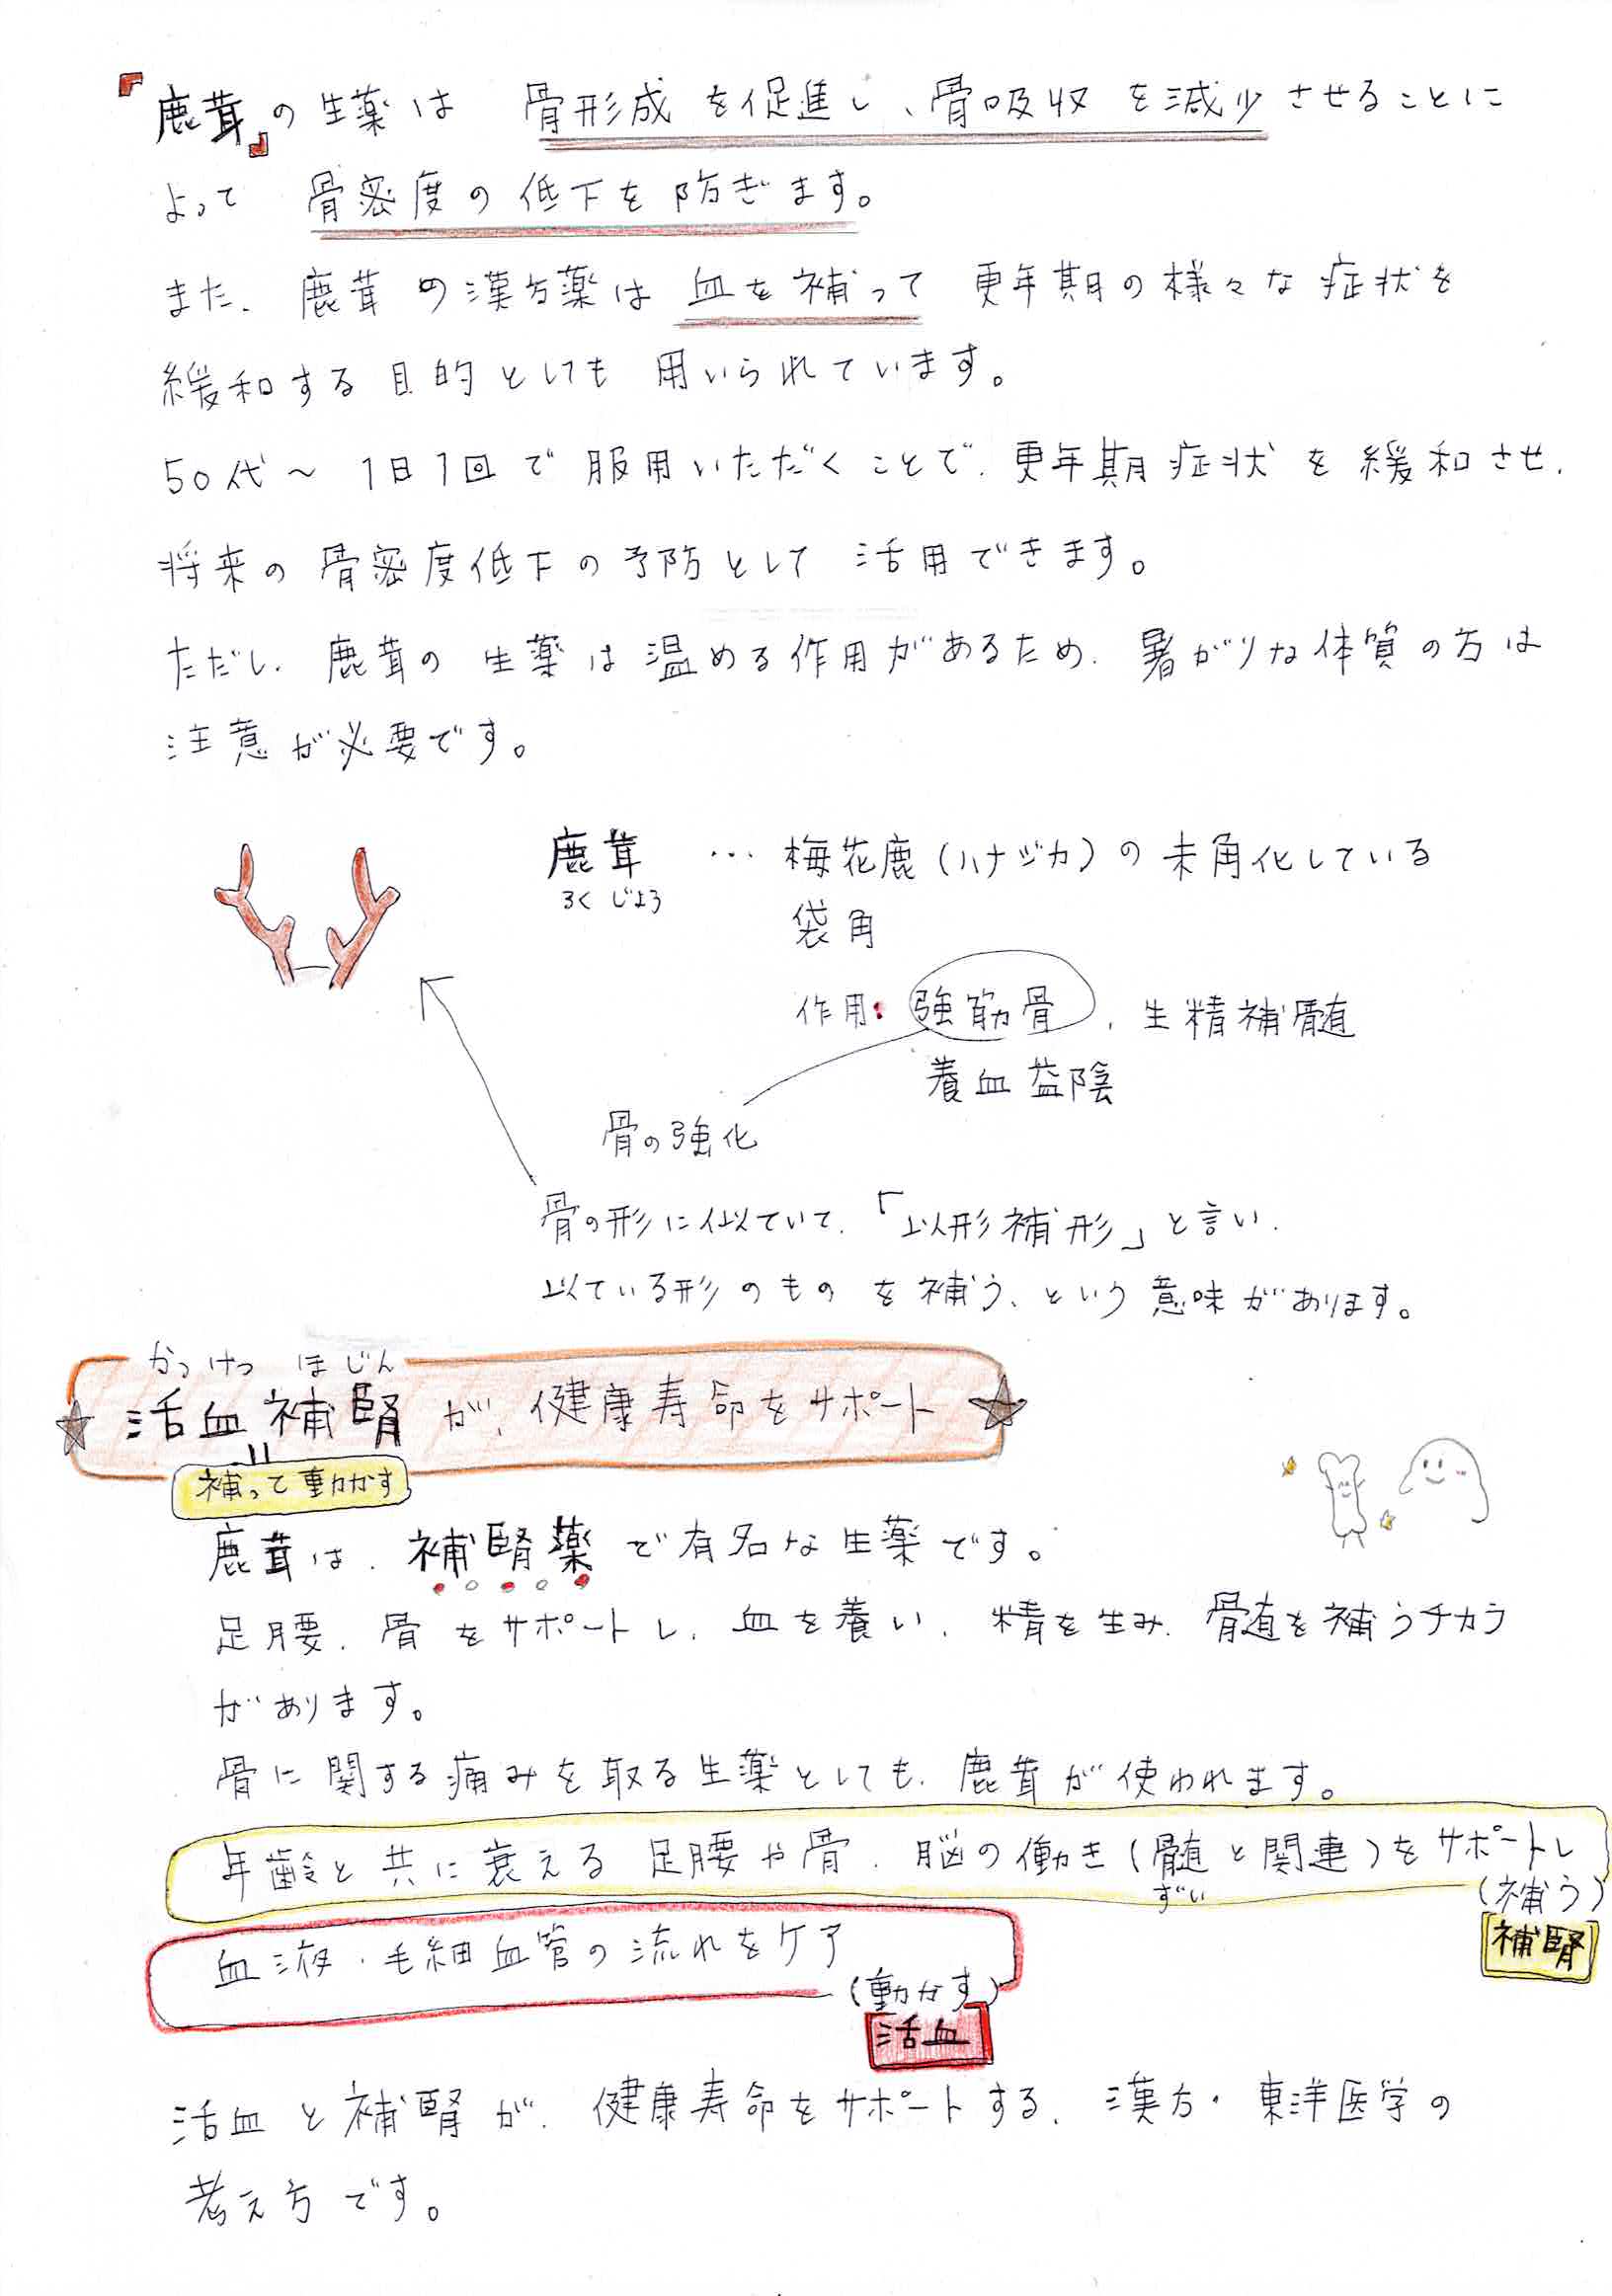 『鹿茸』の生薬は 骨形成を促進し、骨吸収を減少させることに
よって 骨密度の低下を防ぎます。
また、鹿茸の漢方薬は血を補って 更年期の様々な症状を
緩和する目的としても 用いられています。
50代～ 1日1回で服用いただくことで、更年期症状を緩和させ、
将来の骨密度低下の予防として 活用できます。
ただし、鹿茸の生薬は温める作用があるため、暑がりな体質の方は
注意が必要です。
鹿茸 … 梅花鹿(ハナジカ)の未角化している
ろくじょう
袋角
作用:強筋骨、生精補髄
養血益陰
骨の強化
骨の形に似ていて、「以形補形」と言い、
似ている形のものを補う、という意味があります。
かっけつ ほじん
活血補腎が、健康寿命をサポート
補って動かす
鹿茸は、補腎薬で有名な生薬です。
足腰、骨をサポートし、血を養い、精を生み、骨髄を補うチカラ
があります。
骨に関する痛みを取る生薬としても、鹿茸が使われます。
年齢と共に衰える足腰や骨、脳の働き(髄と関連)をサポートし
ずい
(補う)
補腎
血液・毛細血管の流れをケア
(動かす)
活血
活血と補腎が、健康寿命をサポートする、漢方・東洋医学の
考え方です。